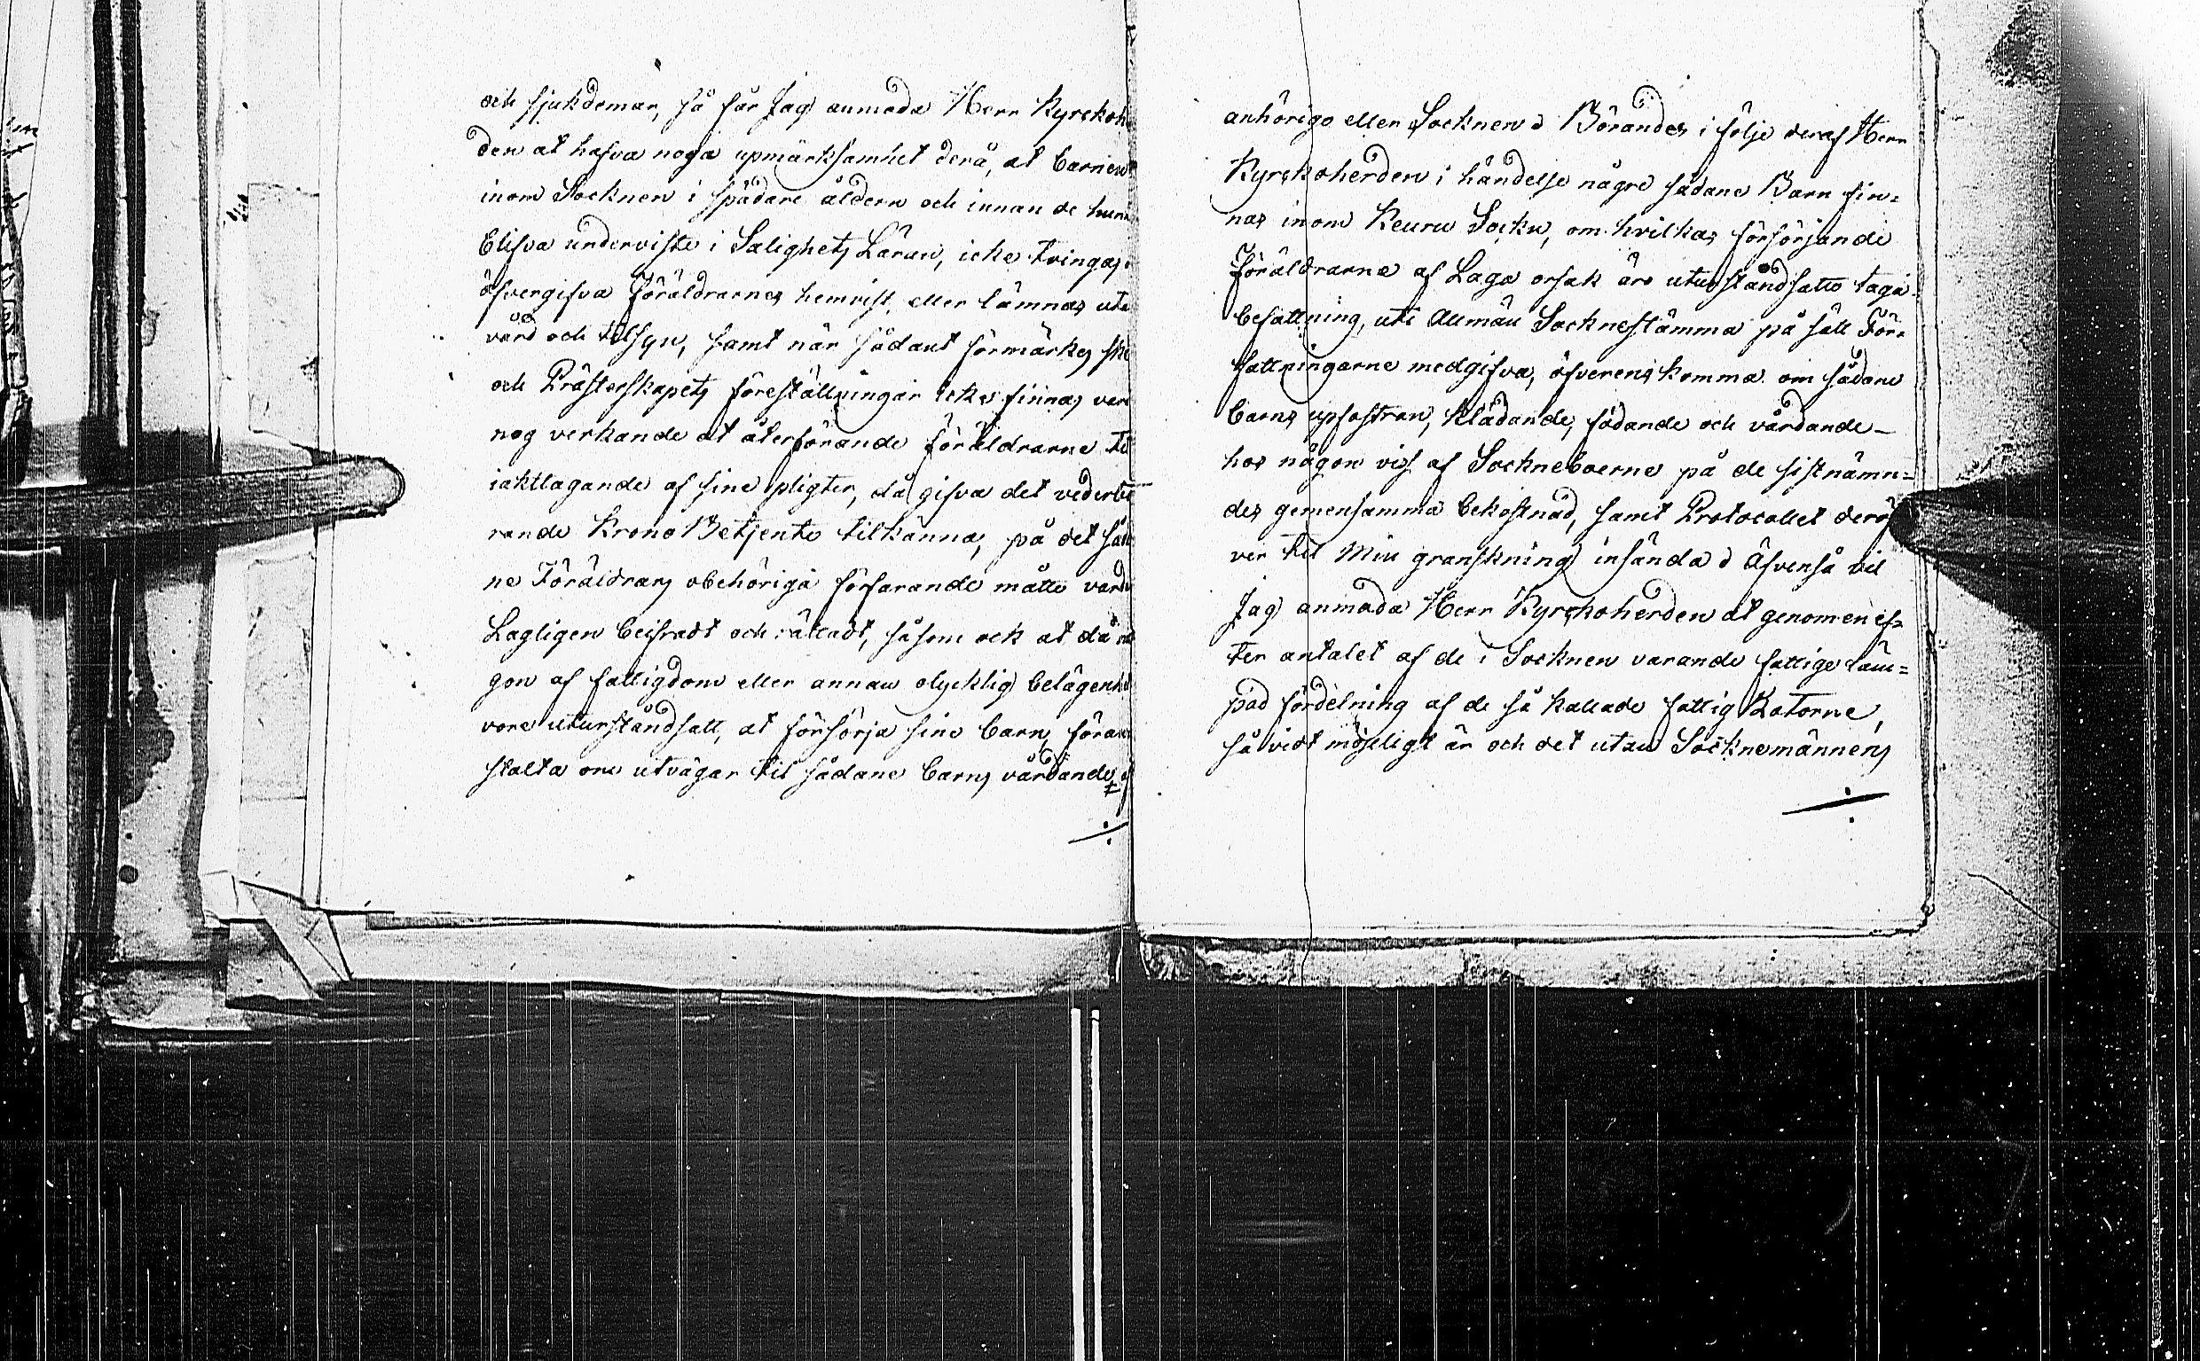 och sjukdomar, så får Jag anmoda Herr Kyrckoh
den at hafva noga upmärksamhet derå, at barnen
inom Socknen i spädare åldern och innan de hun
blifva underviste i Salighets Läran, icke tvingas
öfvergifva föräldrarnes hemvist eller lämnas uta
vård och tilsyn, samt när sådant förmärkes ske
och Prästerskapets föreställningar icke finnas ver
nog verkande at återförande föräldrarne til
iakttagande af sine pligter, då gifva det vederbö
rande Krono Betjente tilkänna, på det såda
ne Föräldrars obehöriga förfarande måtte varda
Lagligen beifradt och rättadt, såsom ock at då nå
gon af fattigdom eller annan olycklig belägenhet
vore uturståndsatt, at försörja sine barn, föran
stalta om utvägar til sådane barns vårdande af
anhörige eller Socknen; Börandes i följe deraf Herr
Kyrckoherden i händelse någre sådane Barn fin-
nas inom Keuru Sockn, om hvilkas försörjande
Föräldrarne af Laga orsak äro uturståndsatte taga
befattning, uti Allmän Socknestämma på sätt För-
fattningarne medgifva, öfverenskomma om sådane
barns upfostran, klädande, födande och vårdande
hos någon viss af Sockneboerne på de sistnämn-
des gemensamma bekostnad, samt Protocollet derö
ver til Min granskning insända; Äfvenså vil
Jag anmoda Herr Kyrckoherden at genom en ef-
ter antalet af de i Socknen varande fattige läm-
pad fördelning af de så kallade fattig Rotorne,
så vidt möjeligt är och det utan Socknemännens